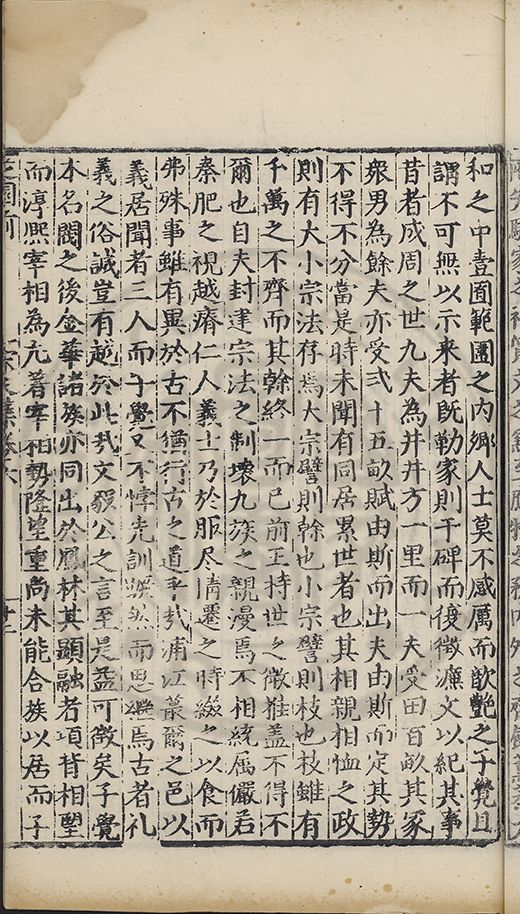 和之中壹囿範圍之内鄉人士莫不感厲而歆艷之子覺且
謂不可無以示来者旣勒家則于碑而復徵濂文以紀其事
昔者成周之世九夫為井井方一里而一夫受田百畝其冢
衆男為餘夫亦受弐十五畝賦由斯而出夫由斯而定其勢
不得不分當是時未聞有同居累世者也其相親相恤之政
則有大小宗法存焉大宗譬則幹也小宗譬則枝也枝雖有
千萬之不齊而其幹終一而已前王持世之微推盖不得不
爾也自夫封建宗法之制壊九族之親漫焉不相統属儼若
秦肥之視越瘠仁人義士乃於服尽情遷之時綴之以食而
弗殊事雖有異於古不猶行古之道乎㦲浦江蕞爾之邑以
義居聞者三人而子覺又不悖先訓 而思継焉古者礼
義之俗誠豈有越於此㦲文 公之言至是益可徵矣子覺
本名閥之後金華諸族亦同出於鳳林其顕融者項背相望
而淳熙宰相為尤著宰相勢隆望重尚未能合族以居而子